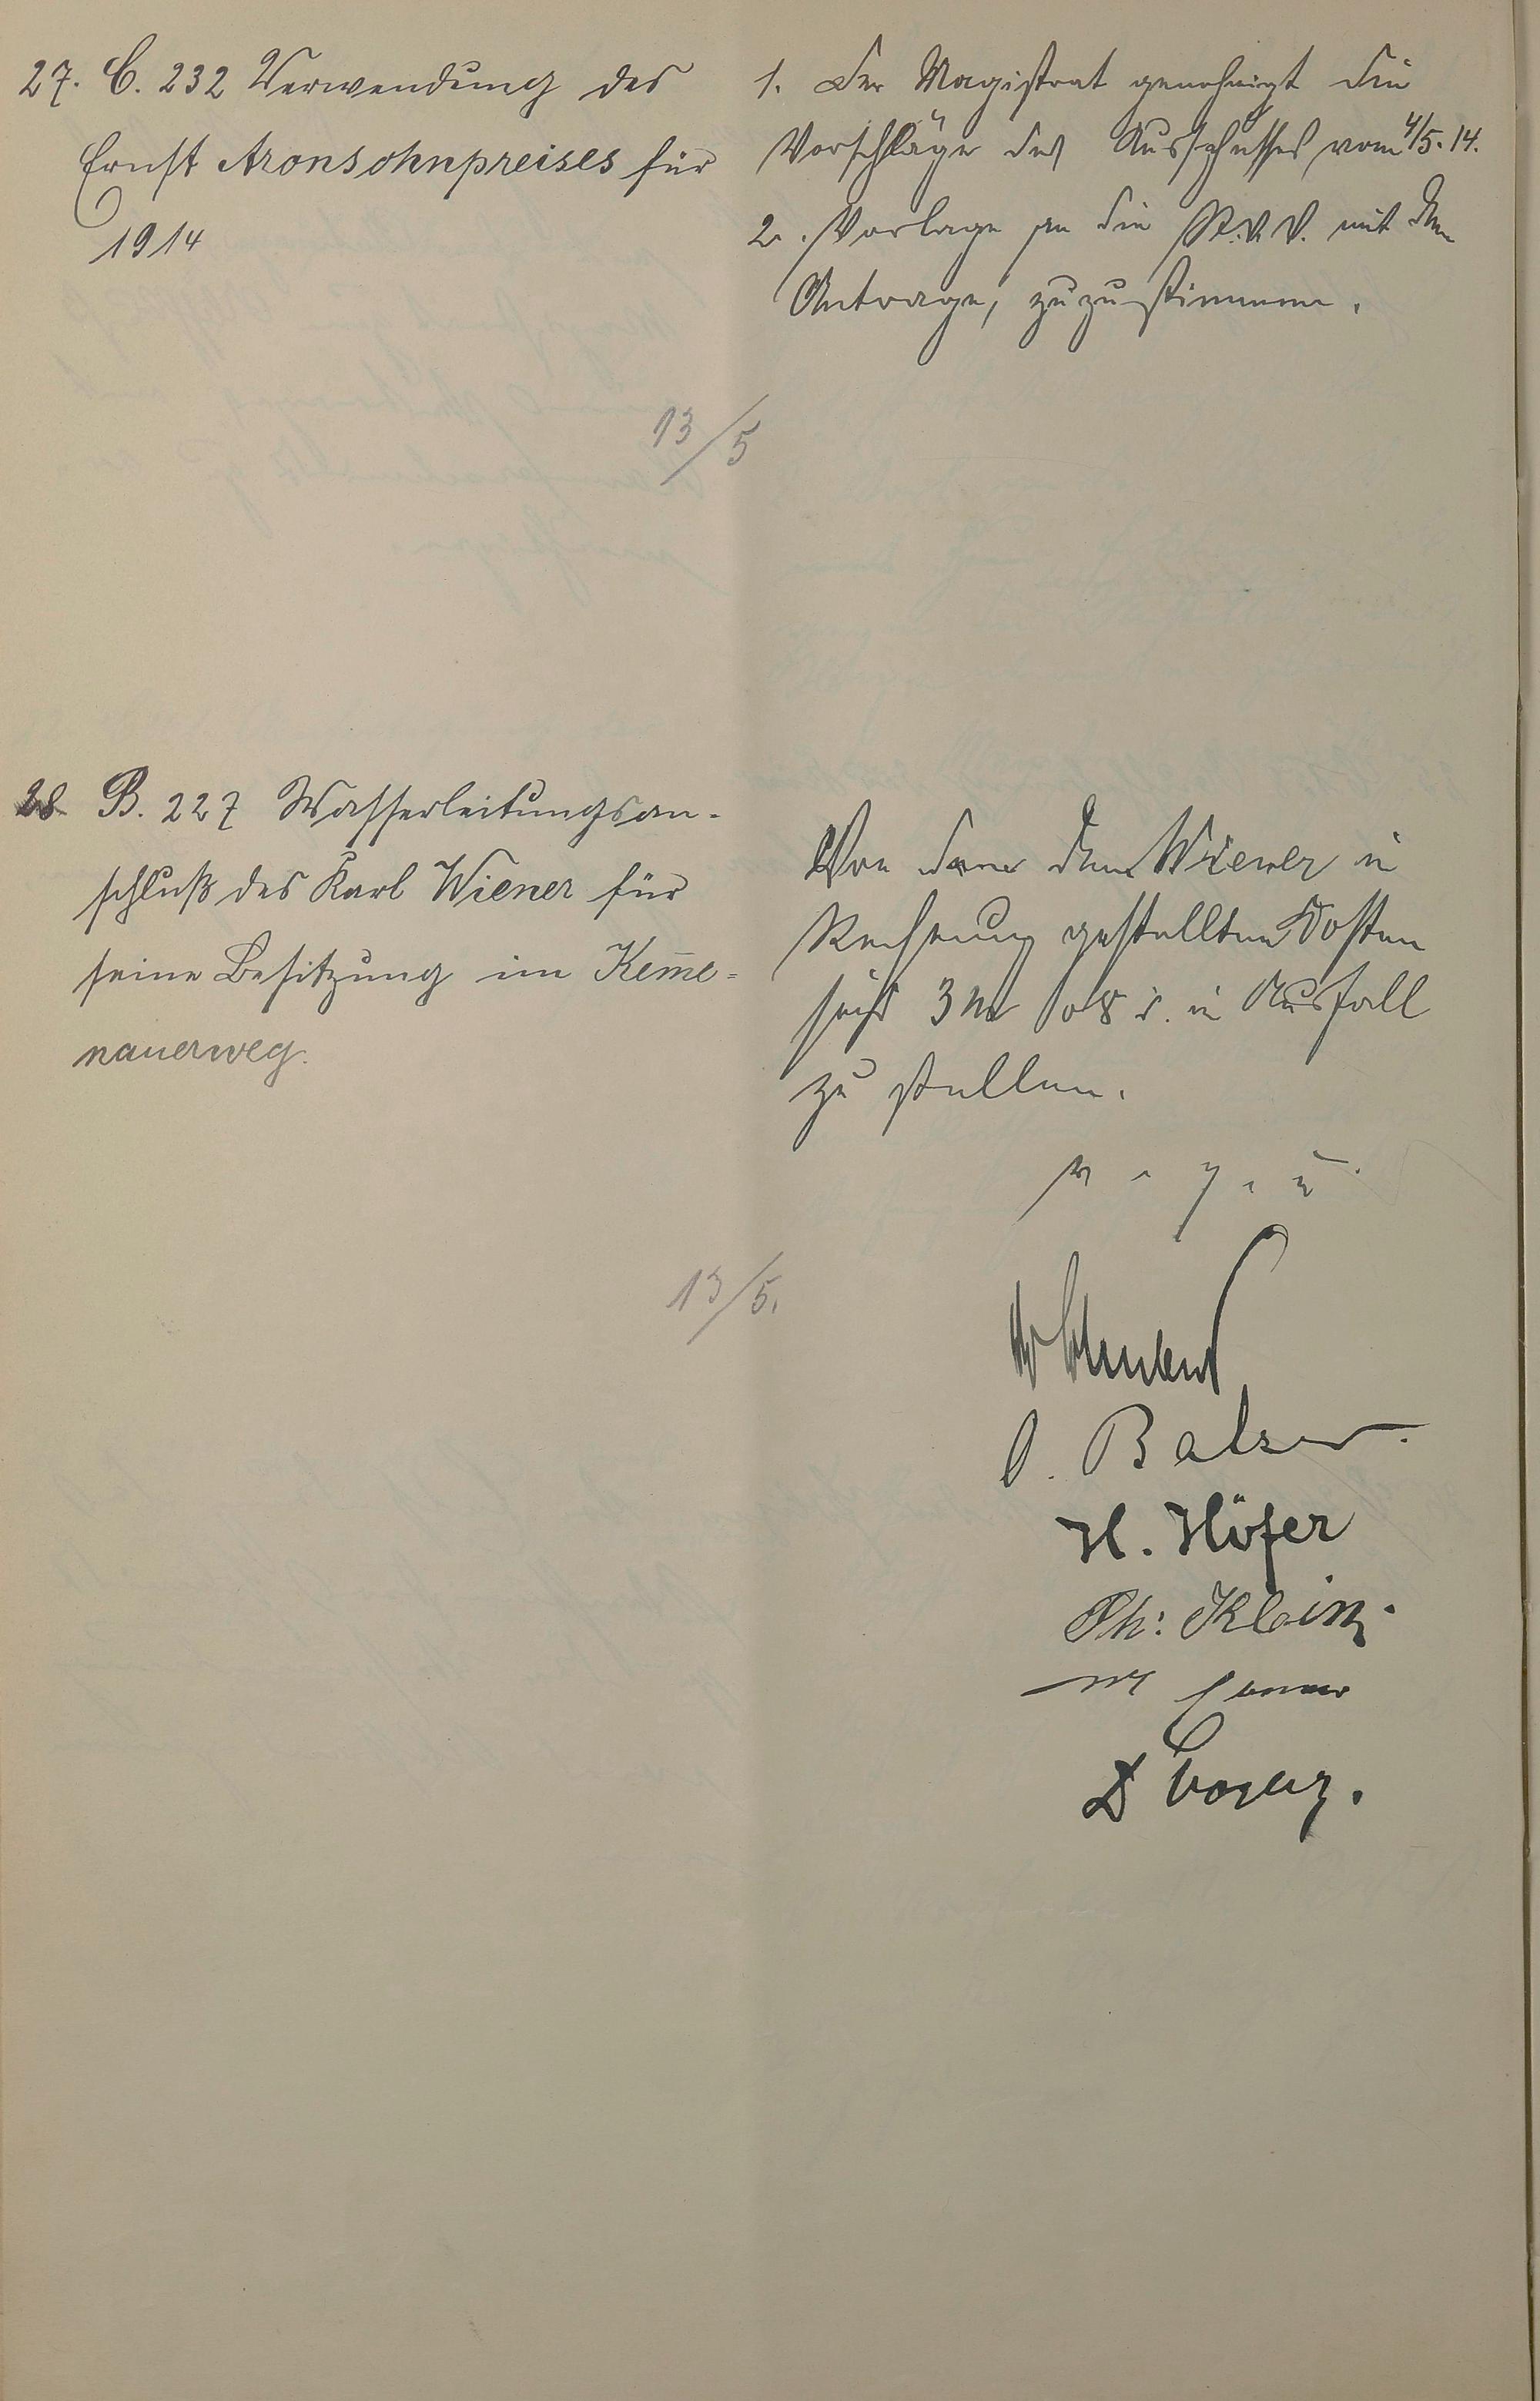 27. C. 232 Verwendung des
Ernst Aronsohnpreises für
1914
1. Der Magistrat genehmigt die
Vorschläge des Ausschusses vom 4/5. 14.
2. Vorlage an die St.V.V. mit dem
Antrage, zuzustimmen.
13/5
28 B. 227 Wasserleitungsan-
schluß des Karl Wiener für
seine Besitzung im Kem̄e-
nauerweg.
Von den dem Wiener in
Rechnung gestellten Kosten
sind 3 M 08 in Ausfall
zu stellen.
v. g. u.
13/5.
Balzer.
H. Höfer
Ph: Klein.